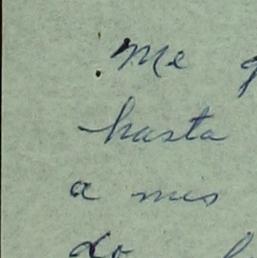 Me
hasta
a mis